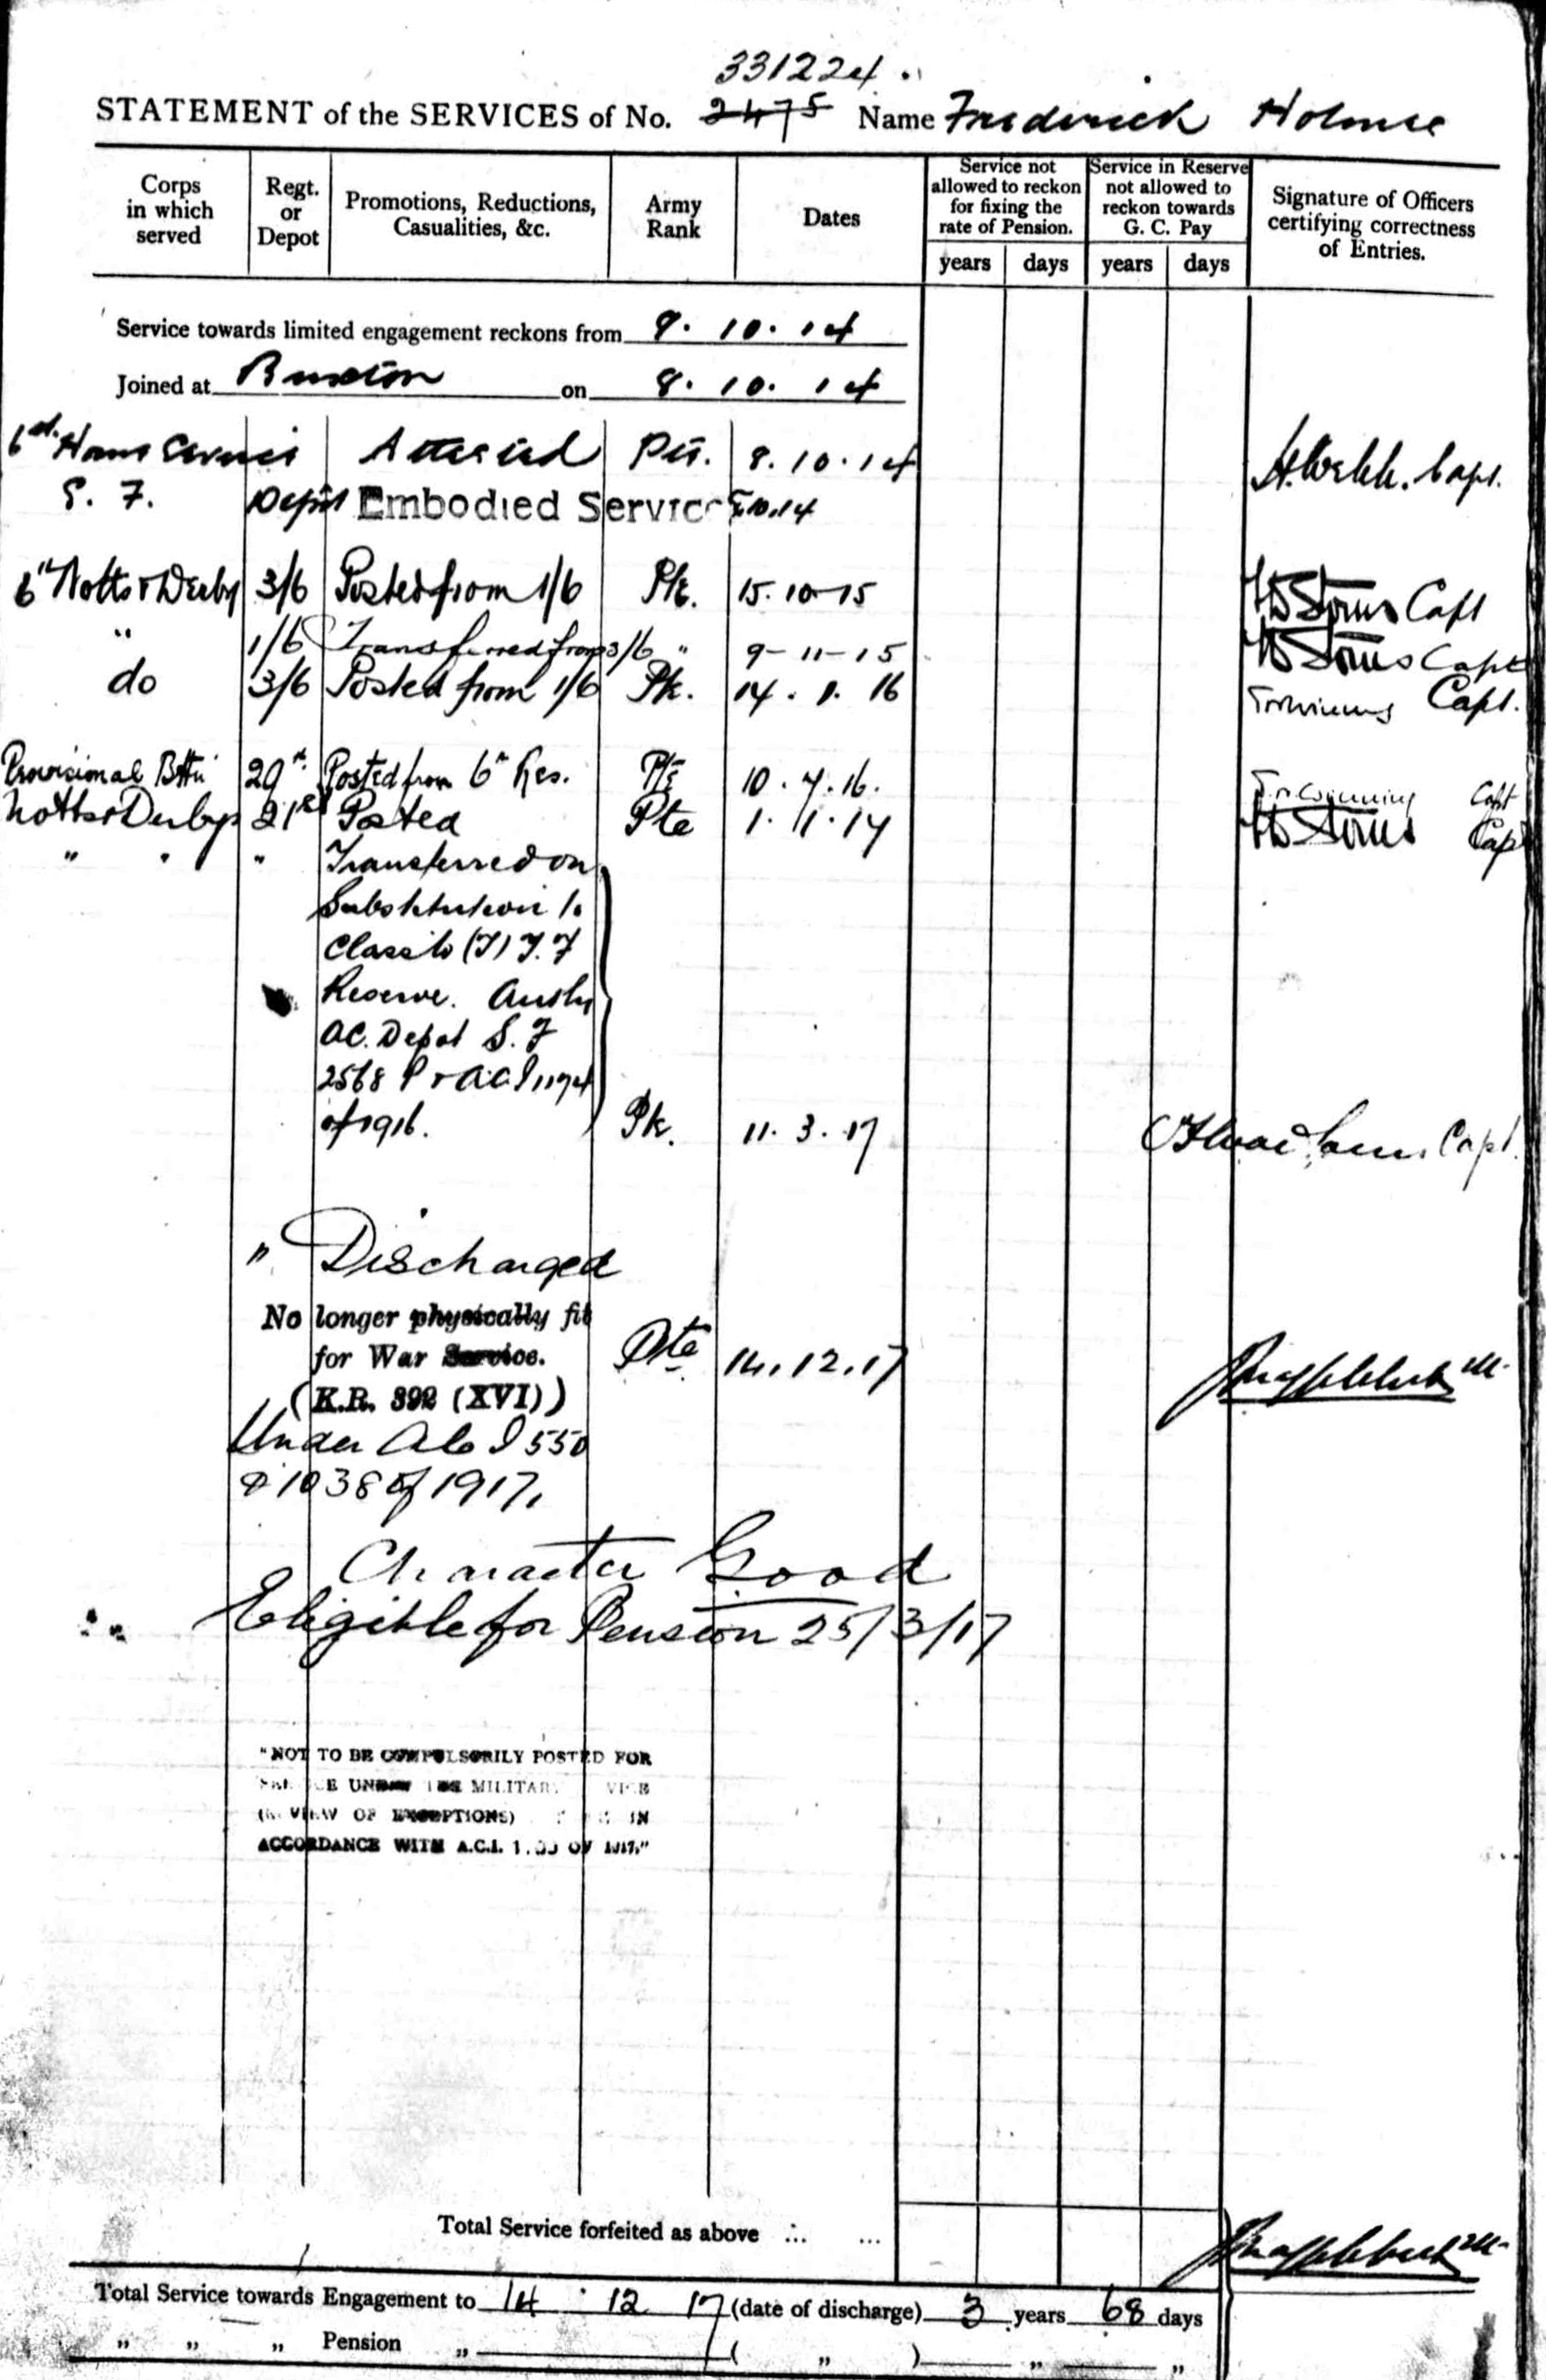 331224.
STATEMENT of the SERVICES of No. 2475 Name Frederick Holmes
Corps in which served
Regt. or Depot
Promotions, Reductions, Casualities, &c.
Army Rank
Dates
Service not allowed to reckon for fixing the rate of Pension.
years days
Service in Reserve not allowed to reckon towards G. C. Pay
years days
Signature of Officers certifying correctness of Entries.
Service towards limited engagement reckons from 8. 10. 14
Joined at Buxton on 8. 10. 14
Attested Pte. 8. 10. 14 Capt.
Depot Embodied Service 10.14
6th Notts & Derby 3/6 Posted from 1/6 Pte. 15-10-15 Capt
" 1/6 Transferred from 3/6 " 9-11-15 Capt
do 3/6 Posted from 1/6 Pte. 14. 1. 16 Capt.
Provisional Bttn 29th Posted from 6th Res. Pte 10. 7. 16. Capt
Notts & Derby 21st Posted Pte 1. 1. 17 Capt
" " " Transferred on
Substitution to
Class W (T) T.F
Reserve. Authy
OC. Depot S. F
2568 of 1916. Pte. 11. 3. 17 Capt.
" Discharged
No longer physically fit
for War Service. Pte 14.12.17
(K.R. 392 (XVI))
Under A C I 550
& 1038 of 1917.
Character Good
Eligible for Pension 25/3/17
"NOT TO BE COMPULSORILY POSTED FOR
UNDER THE MILITARY
(REVIEW OF EXCEPTIONS) IN
ACCORDANCE WITH A.C.I. OF 1917."
Total Service forfeited as above ... ...
Total Service towards Engagement to 14 12 17 (date of discharge) 3 years 68 days
" " " Pension " ( " ) " "